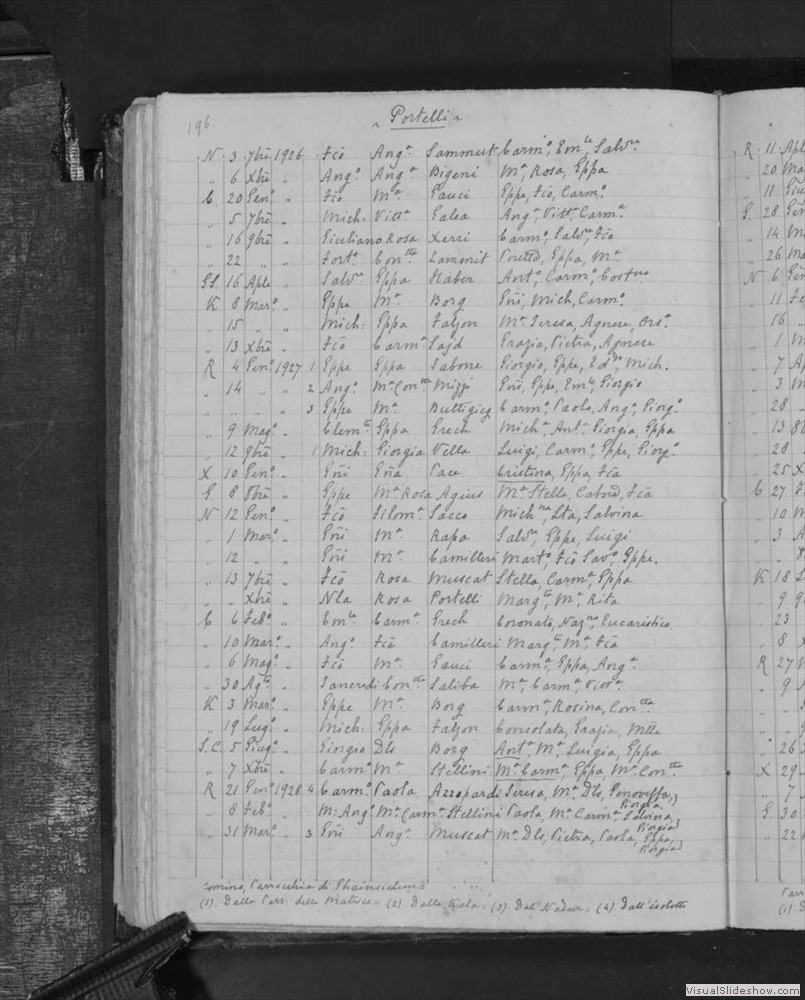 196.
Portelli
N. 3 7bre 1926 Fcõ Angª Sammut Carmº, Emle, Salvra
" 6 Xbre " Angº Angª Bigeni Mª, Rosa, Eppa
C. 20 Genº " Fcõ Mª Gauci Eppe, Fcõ, Carmº
" 5 7bre " Mich. Vittª Galea Angª, Vittª, Carmª
" 16 9bre " Giuliano Rosa Xerri Carmº, Salvr, Fcõ
" 22 " " Fortº Contta Eppa, Mª
16 Aple " Salvr Eppa Haber Antº, Carmº,
K 8 Marº " Eppe Mª Borg Gni, Mich, Carmº
" 15 " " Mich: Eppa Falzon Mª Teresa, Agnese,
" 13 Xbre " Fcõ Carmª Sajd Grazia, Pietra, Agnese
R 4 Genº 1927 1 Eppe Eppa Sabone Giorgio, Eppe, Mich.
" 14 " " 2 Angº Mª Contta Mizzi Gni, Eppe, Emle, Giorgio
" " " " 3 Eppe Mª Buttigieg Carmº, Paolo, Angº, Giorgº
" 9 Magº " Clemte Eppa Grech Michª, Antª, Giorgia, Eppa
" 12 9bre " 1 Mich: Giorgia Vella Luigi, Carmº, Eppe, Giorgº
X 10 Genº " Gni Gna Pace Cristina, Eppa, Fcã
G. 8 8bre " Eppe Mª Rosa Agius Mª Stella, Fcã
N 12 Genº " Fcõ Filomª Sacco Salvina
" 1 Marº " Gni Mª Rapa Salvr, Eppe, Luigi
" 12 " " Gni Mª Camilleri Martº, Fcõ Savº, Eppe.
" 13 7bre " Fcõ Rosa Muscat Stella, Carmª, Eppa
" " Xbre " Nla Rosa Portelli Margta, Mª, Rita
C 6 Febº " Emle Carmª Grech Coronato, Eucaristico
" 10 Marº " Angº Fcã Camilleri Margta, Mª, Fcã
" 6 Magº " Fcõ Mª Gauci Carmª, Eppa, Angª
" 30 Agto " Tancredi Contta Saliba Mª, Carmª, Vittª
K 3 Marº " Eppe Mª Borg Carmª, Rosina, Contta
" 19 Lugº " Mich: Eppa Falzon Consolata, Grazia,
S.C. 5 Giugº " Giorgio Dls Borg Antª, Mª, Luigia, Eppa
" 7 Xbre " Carmº Mª Stellini Mª Carmª, Eppa, Mª Contta
R 21 Genº 1928 4 Carmº Paola Azzopardi Teresa, Mª Dls, Genoveffa, Giorgia
" 8 Febº " M: Angº Mª Carmª Stellini Paola, Mª Carmª Salvina, Giorgia
" 31 Marº " 3 Gni Angª Muscat Mª Dls, Pietra, Paola, Eppa, Giorgia
Comino, Parrocchia di Ghainsielem
(1). Dalla Parr. della Matrice = (2). Dalla Kala = (3). Dal Nadur = (4). Dall'isolotto
R. 11 Aple
" 20
" 11
G. 28
" 14
" 26
N 6
" 11
" 16
" 1
" 7
" 3
" 28
" 13
" 28
" 25
C 27
" 10
" 3
K 18
" 9
" 23
" 8
R 27
" 9
" 26
X 29
" 7
G 30
" 22
VisualSlideshow.com